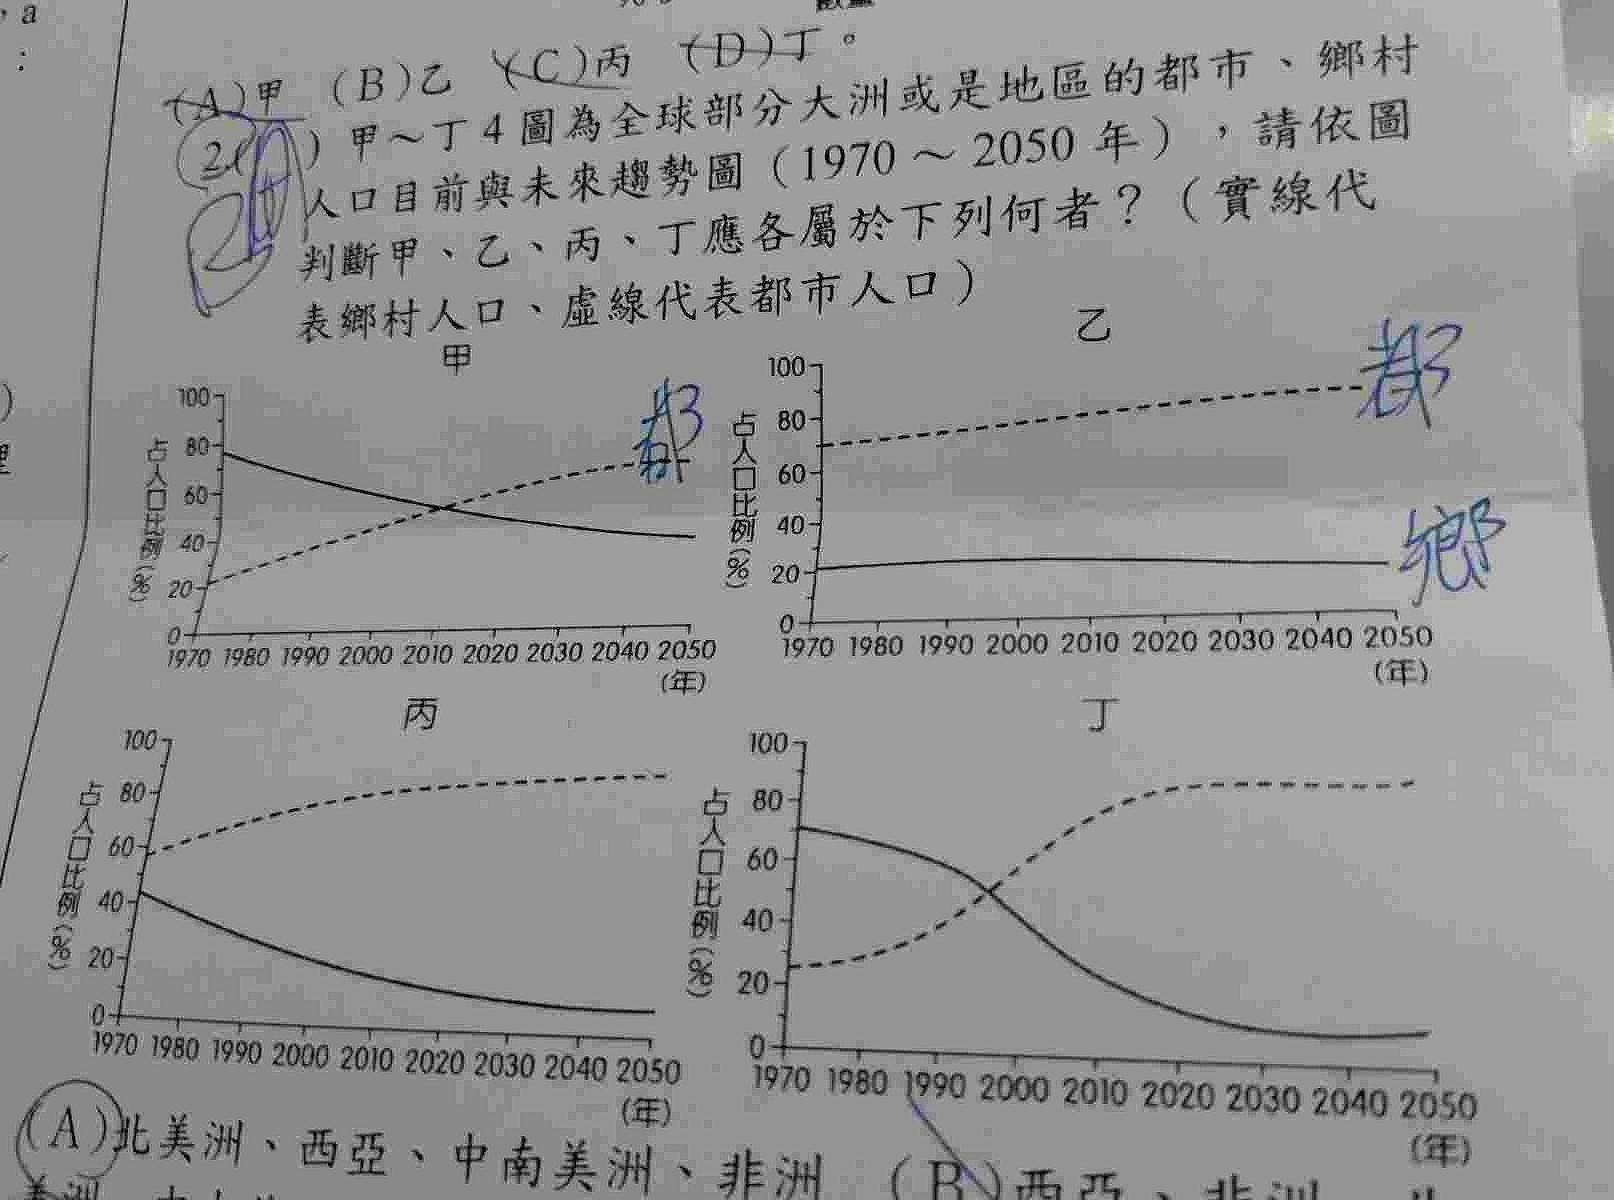 ，a
：
(A)甲 (B)乙 (C)丙 (D)丁。
2.( )甲～丁4圖為全球部分大洲或是地區的都市、鄉村
人口目前與未來趨勢圖（1970～2050年），請依圖
判斷甲、乙、丙、丁應各屬於下列何者？（實線代
表鄉村人口、虛線代表都市人口）
甲
100
80
60
40
20
0
占人口比例(%)
都
1970 1980 1990 2000 2010 2020 2030 2040 2050
(年)
乙
100
80
60
40
20
0
占人口比例(%)
都
鄉
1970 1980 1990 2000 2010 2020 2030 2040 2050
(年)
丙
100
80
60
40
20
0
占人口比例(%)
1970 1980 1990 2000 2010 2020 2030 2040 2050
(年)
丁
100
80
60
40
20
0
占人口比例(%)
1970 1980 1990 2000 2010 2020 2030 2040 2050
(年)
(A)北美洲、西亞、中南美洲、非洲 (B)西亞、非洲、北
美洲、中南美